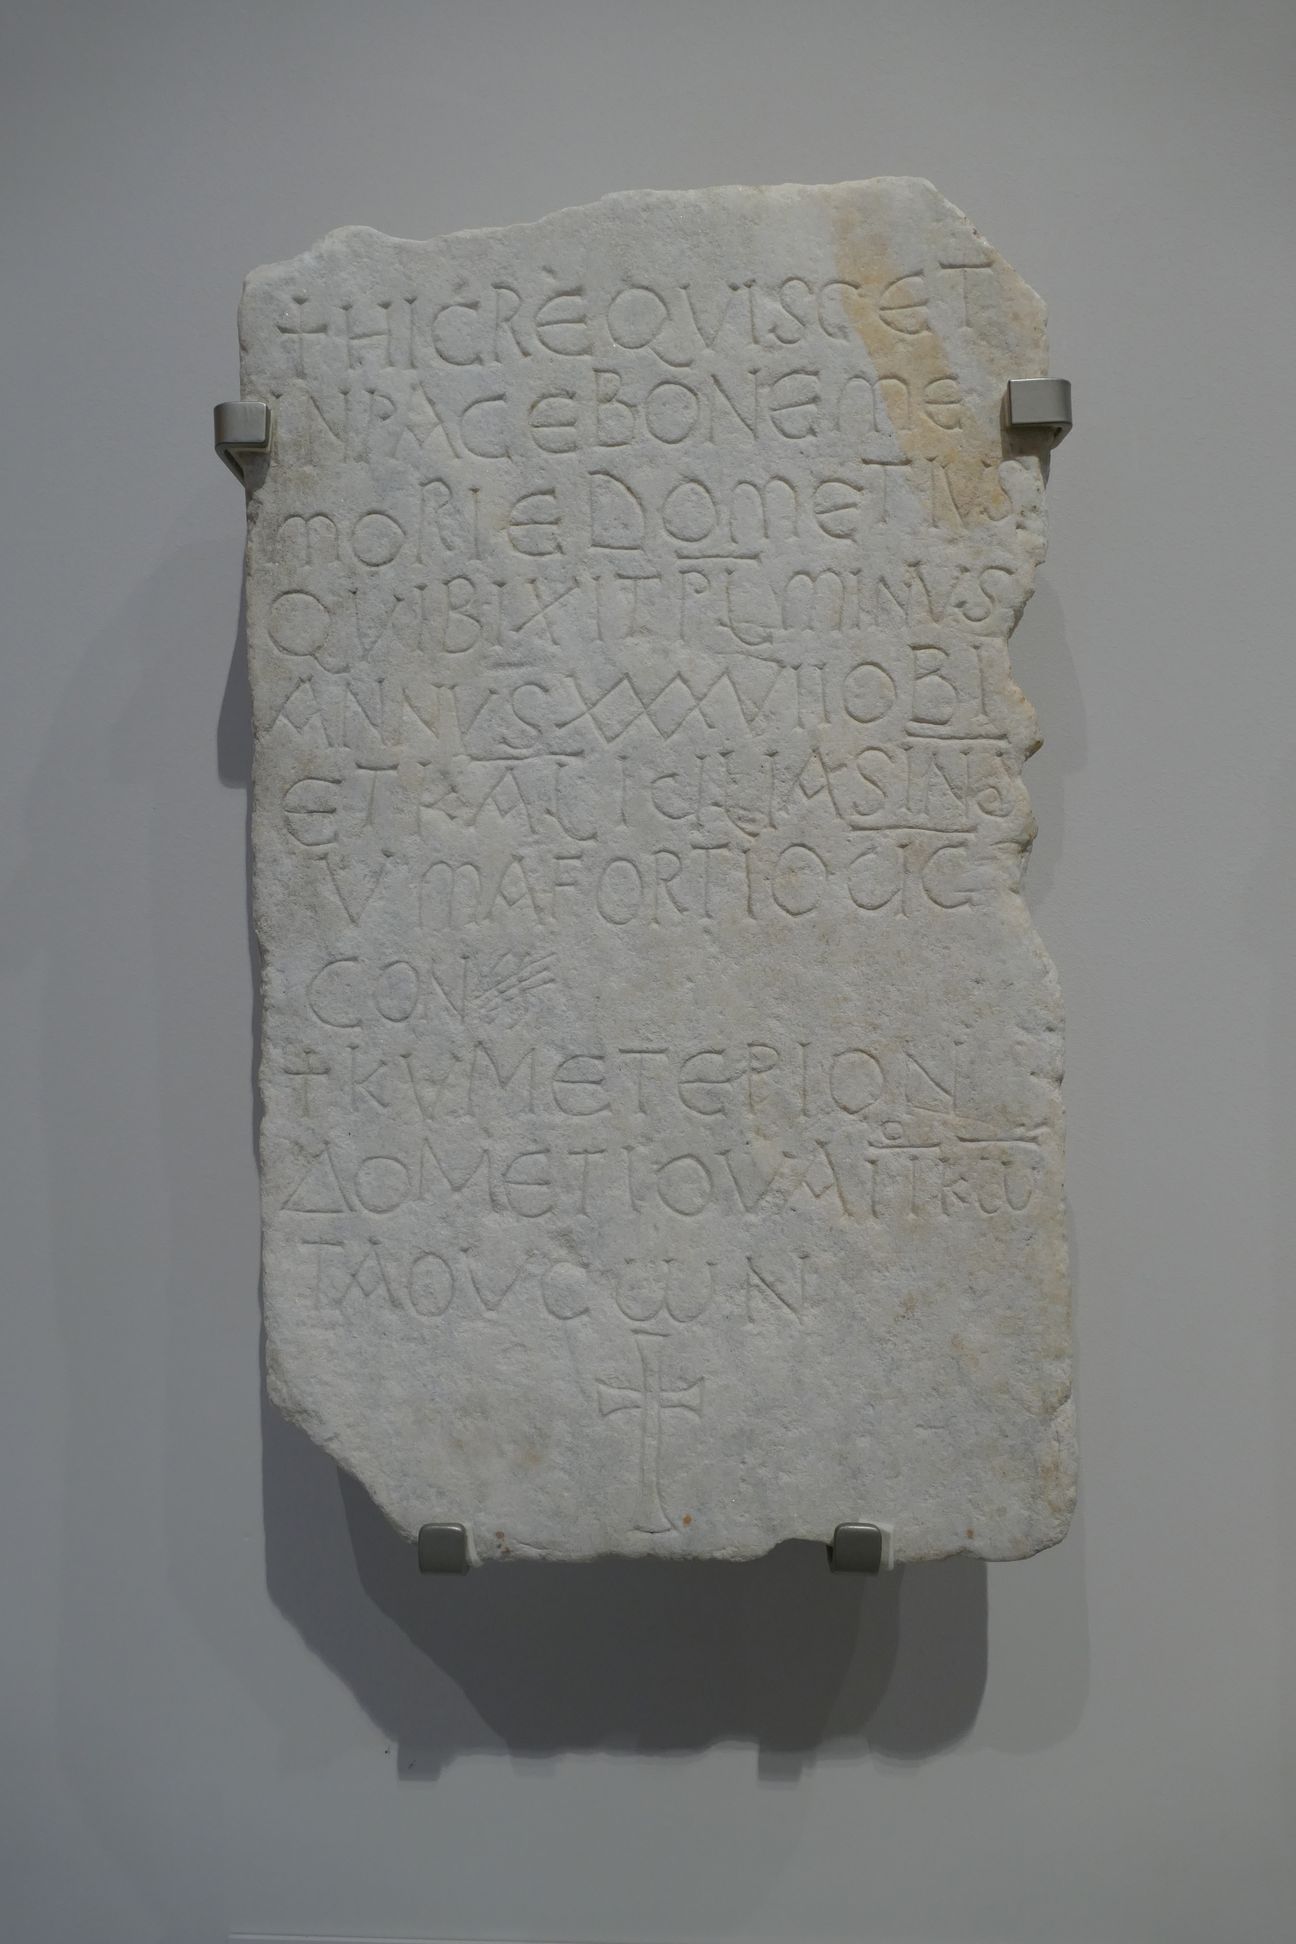 + HIC REQVISCET
IN PACE BONE ME
MORIE DOMETIVS
QVI BIXIT PL MINVS
ANNVS XXXVII OBI
ET KAL ICILIAS IND
VMAFORTIO CIG
CON
+ KVMETEPION
ΔOMETIOV AΠ Kω
TAOVCωN